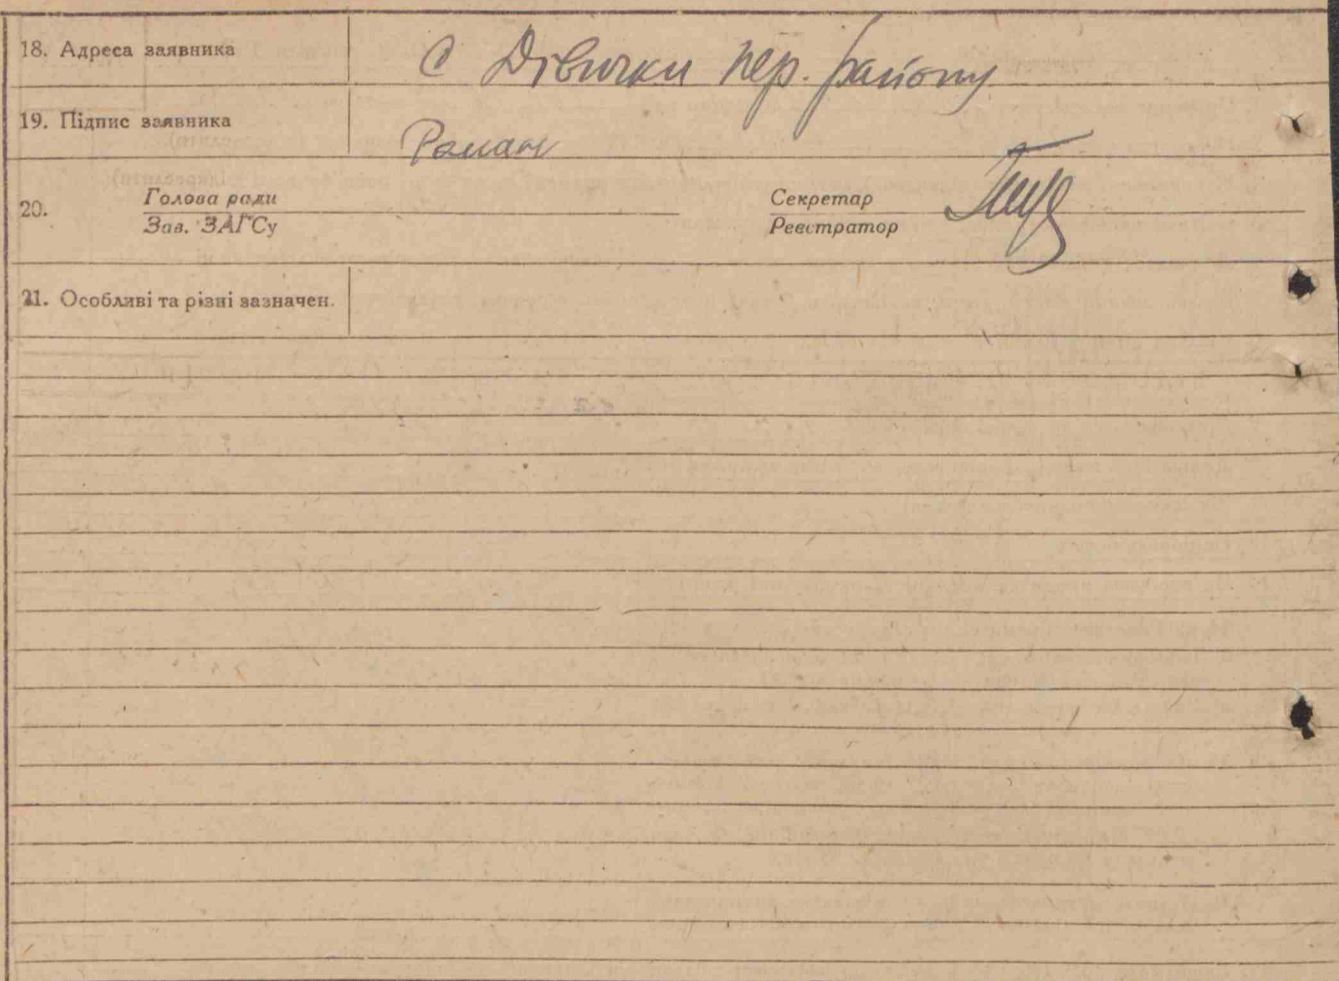 18. Адреса заявника С Дівички пер. району
19. Підпис заявника Роман
20. Голова ради Секретар
Зав. ЗАГСу Реєстратор
21. Особливі та різні зазначен.